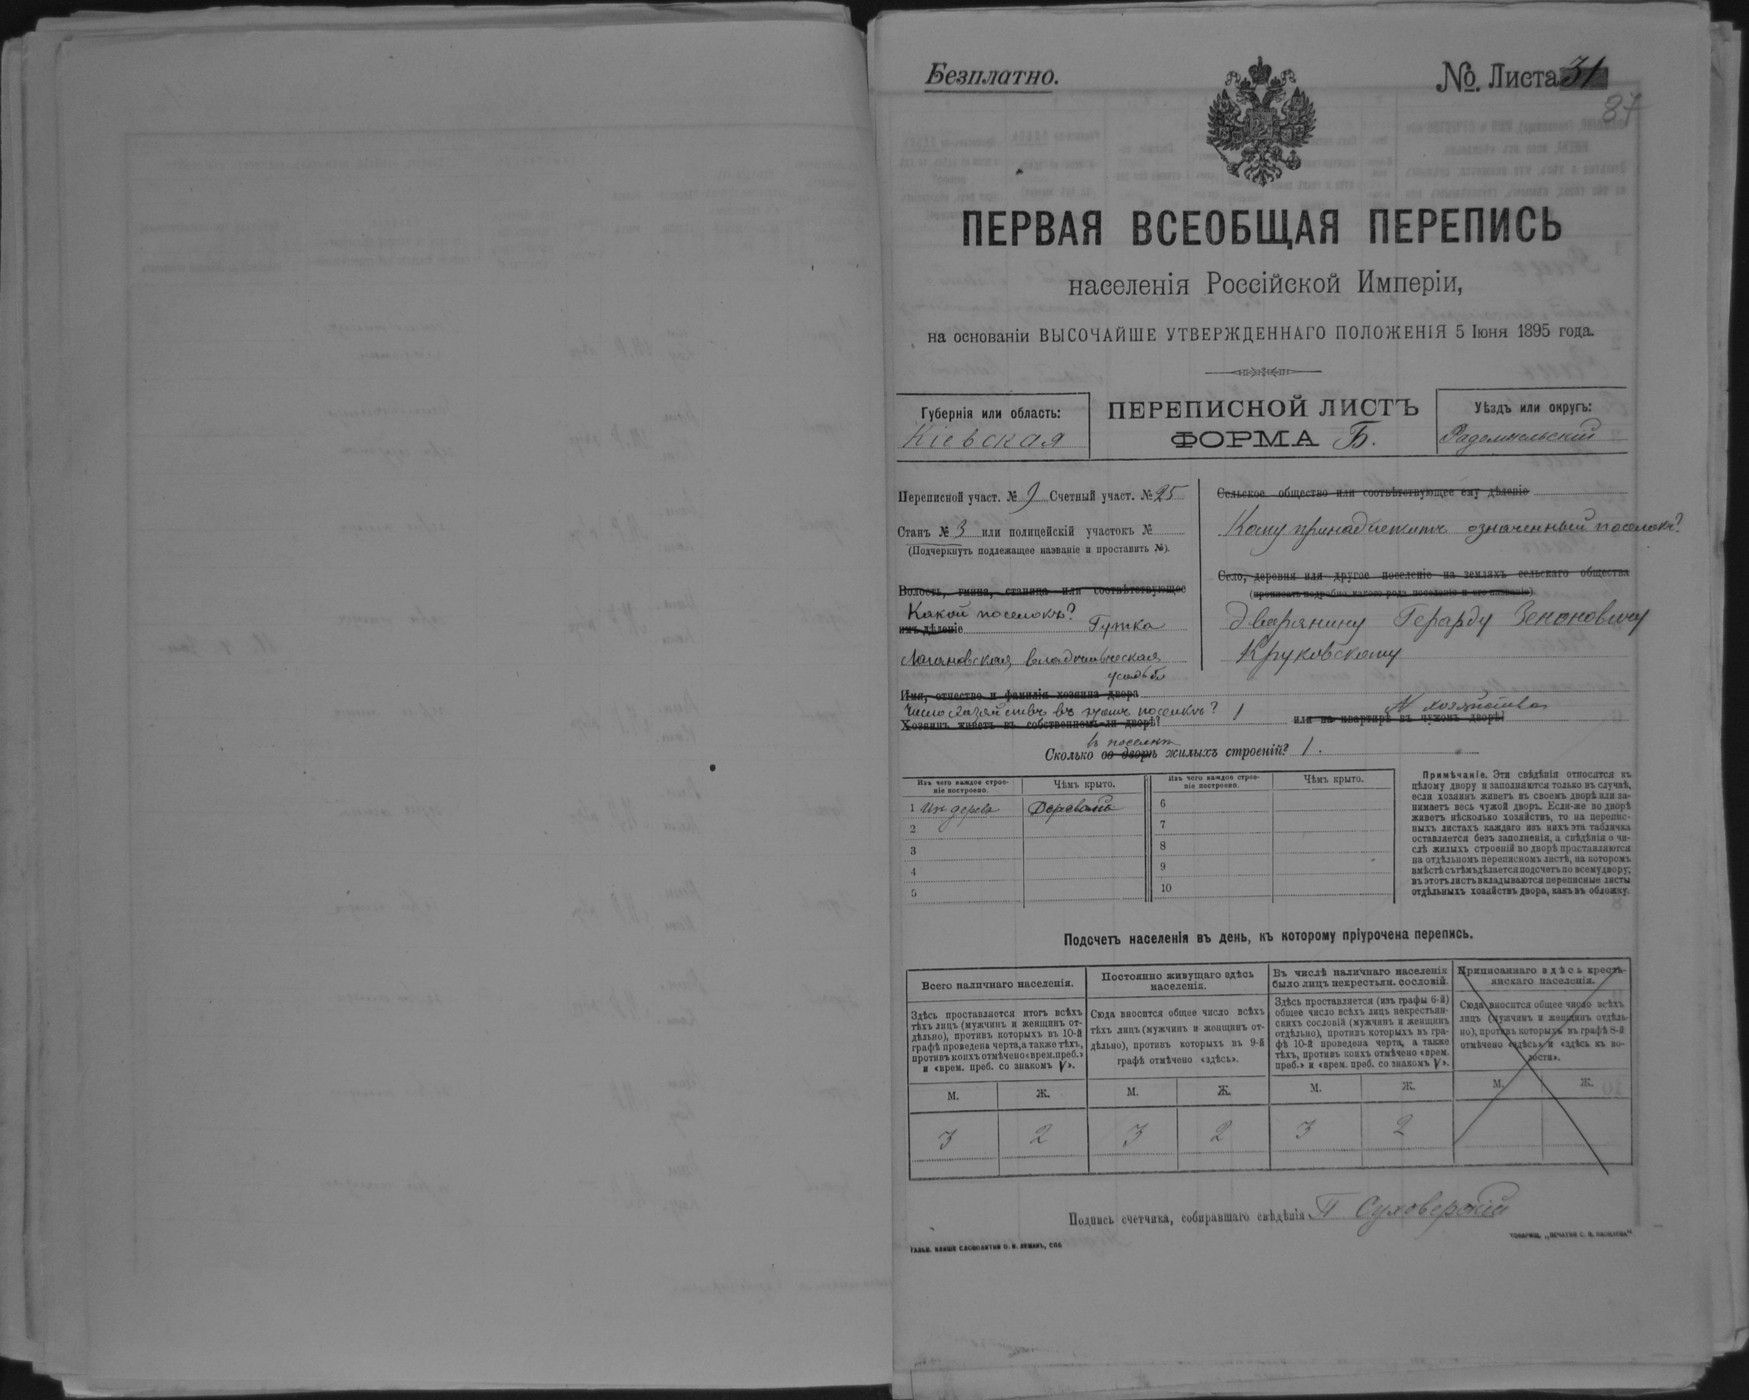 Безплатно.
№ Листа 31
87
ПЕРВАЯ ВСЕОБЩАЯ ПЕРЕПИСЬ
населенія Россійской Имперіи,
на основаніи ВЫСОЧАЙШЕ УТВЕРЖДЕННАГО ПОЛОЖЕНІЯ 5 Іюня 1895 года.
Губернія или область:
Кіевская
ПЕРЕПИСНОЙ ЛИСТЪ
ФОРМА Б.
Уѣздъ или округъ:
Радомысльскій
Переписной участ. № 9 Счетный участ. № 25
Станъ № 3 или полицейскій участокъ №
(Подчеркнуть подлежащее названіе и проставить №).
Волость, гмина, станица или соотвѣтствующее
Какой поселокъ?
имъ дѣленіе Гутка
владѣльческая
усадьба
Сельское общество или соотвѣтствующее ему дѣленіе
Кому принадлежитъ означенный поселокъ?
Село, деревня или другое поселеніе на земляхъ сельскаго общества
(прописать подробно какого рода поселеніе и его названіе)
Дворянину Герарду Зеноновичу
Круковскому
Имя, отчество и фамилія хозяина двора
Число хозяйствъ въ поселкѣ? 1 № хозяйства
Хозяинъ живетъ въ собственномъ-ли дворѣ? или на квартирѣ въ чужомъ дворѣ?
въ поселкѣ
Сколько во дворѣ жилыхъ строеній? 1.
Изъ чего каждое строе-
ніе построено.
Чѣмъ крыто.
Изъ чего каждое строе-
ніе построено.
Чѣмъ крыто.
1 Изъ дерева Деревомъ
2
3
4
5
6
7
8
9
10
Примѣчаніе. Эти свѣдѣнія относятся къ
цѣлому двору и заполняются только въ случаѣ,
если хозяинъ живетъ въ своемъ дворѣ или за-
нимаетъ весь чужой дворъ. Если-же во дворѣ
живетъ нѣсколько хозяйствъ, то на перепис-
ныхъ листахъ каждаго изъ нихъ эта табличка
оставляется безъ заполненія, а свѣдѣнія о чи-
слѣ жилыхъ строеній во дворѣ проставляются
на отдѣльномъ переписномъ листѣ, на которомъ
вмѣстѣ съ тѣмъ дѣлается подсчетъ по всему двору;
въ этотъ листъ вкладываются переписные листы
отдѣльныхъ хозяйствъ двора, какъ въ обложку.
Подсчетъ населенія въ день, къ которому пріурочена перепись.
Всего наличнаго населенія.
Здѣсь проставляется итогъ всѣхъ
тѣхъ лицъ (мужчинъ и женщинъ от-
дѣльно), противъ которыхъ въ 10-й
графѣ проведена черта, а также тѣхъ,
противъ коихъ отмѣчено «врем. преб.»
и «врем. преб. со знакомъ V».
М. Ж.
3 2
Постоянно живущаго здѣсь
населенія.
Сюда вносится общее число всѣхъ
тѣхъ лицъ (мужчинъ и женщинъ от-
дѣльно), противъ которыхъ въ 9-й
графѣ отмѣчено «здѣсь».
М. Ж.
3 2
Въ числѣ наличнаго населенія
было лицъ некрестьян. сословій.
Здѣсь проставляется (изъ графы 6-й)
общее число всѣхъ лицъ некрестьян-
скихъ сословій (мужчинъ и женщинъ
отдѣльно), противъ которыхъ въ гра-
фѣ 10-й проведена черта, а также
тѣхъ, противъ коихъ отмѣчено «врем.
преб.» и «врем. преб. со знакомъ V».
М. Ж.
3 2
Приписаннаго здѣсь кресть-
янскаго населенія.
Сюда вносится общее число всѣхъ
лицъ (мужчинъ и женщинъ отдѣль-
но), противъ которыхъ въ графѣ 8-й
отмѣчено «здѣсь» и «здѣсь къ во-
лости».
М. Ж.
Подпись счетчика, собиравшаго свѣдѣнія П Суховерскій
ГАЛЬВ. КЛИШЕ СЛОВОЛИТНИ О. И. ЛЕМАНЪ, СПБ
ТОВАРИЩ. „ПЕЧАТНЯ С. П. ЯКОВЛЕВА“.